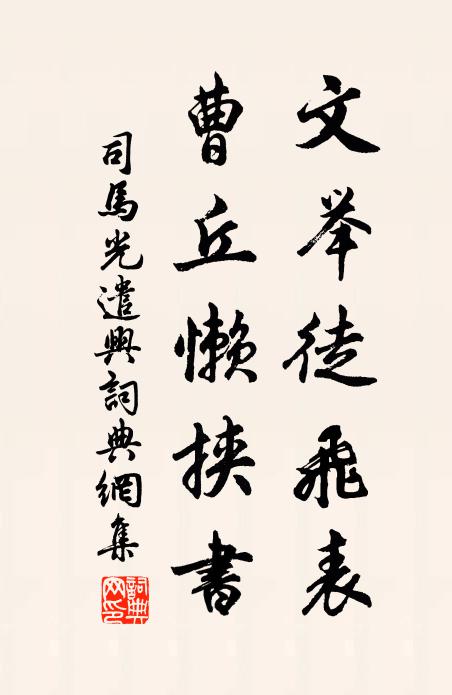 文举徒飛表
曹丘懶挾書
司馬光遣興詞典網集
詞典网印